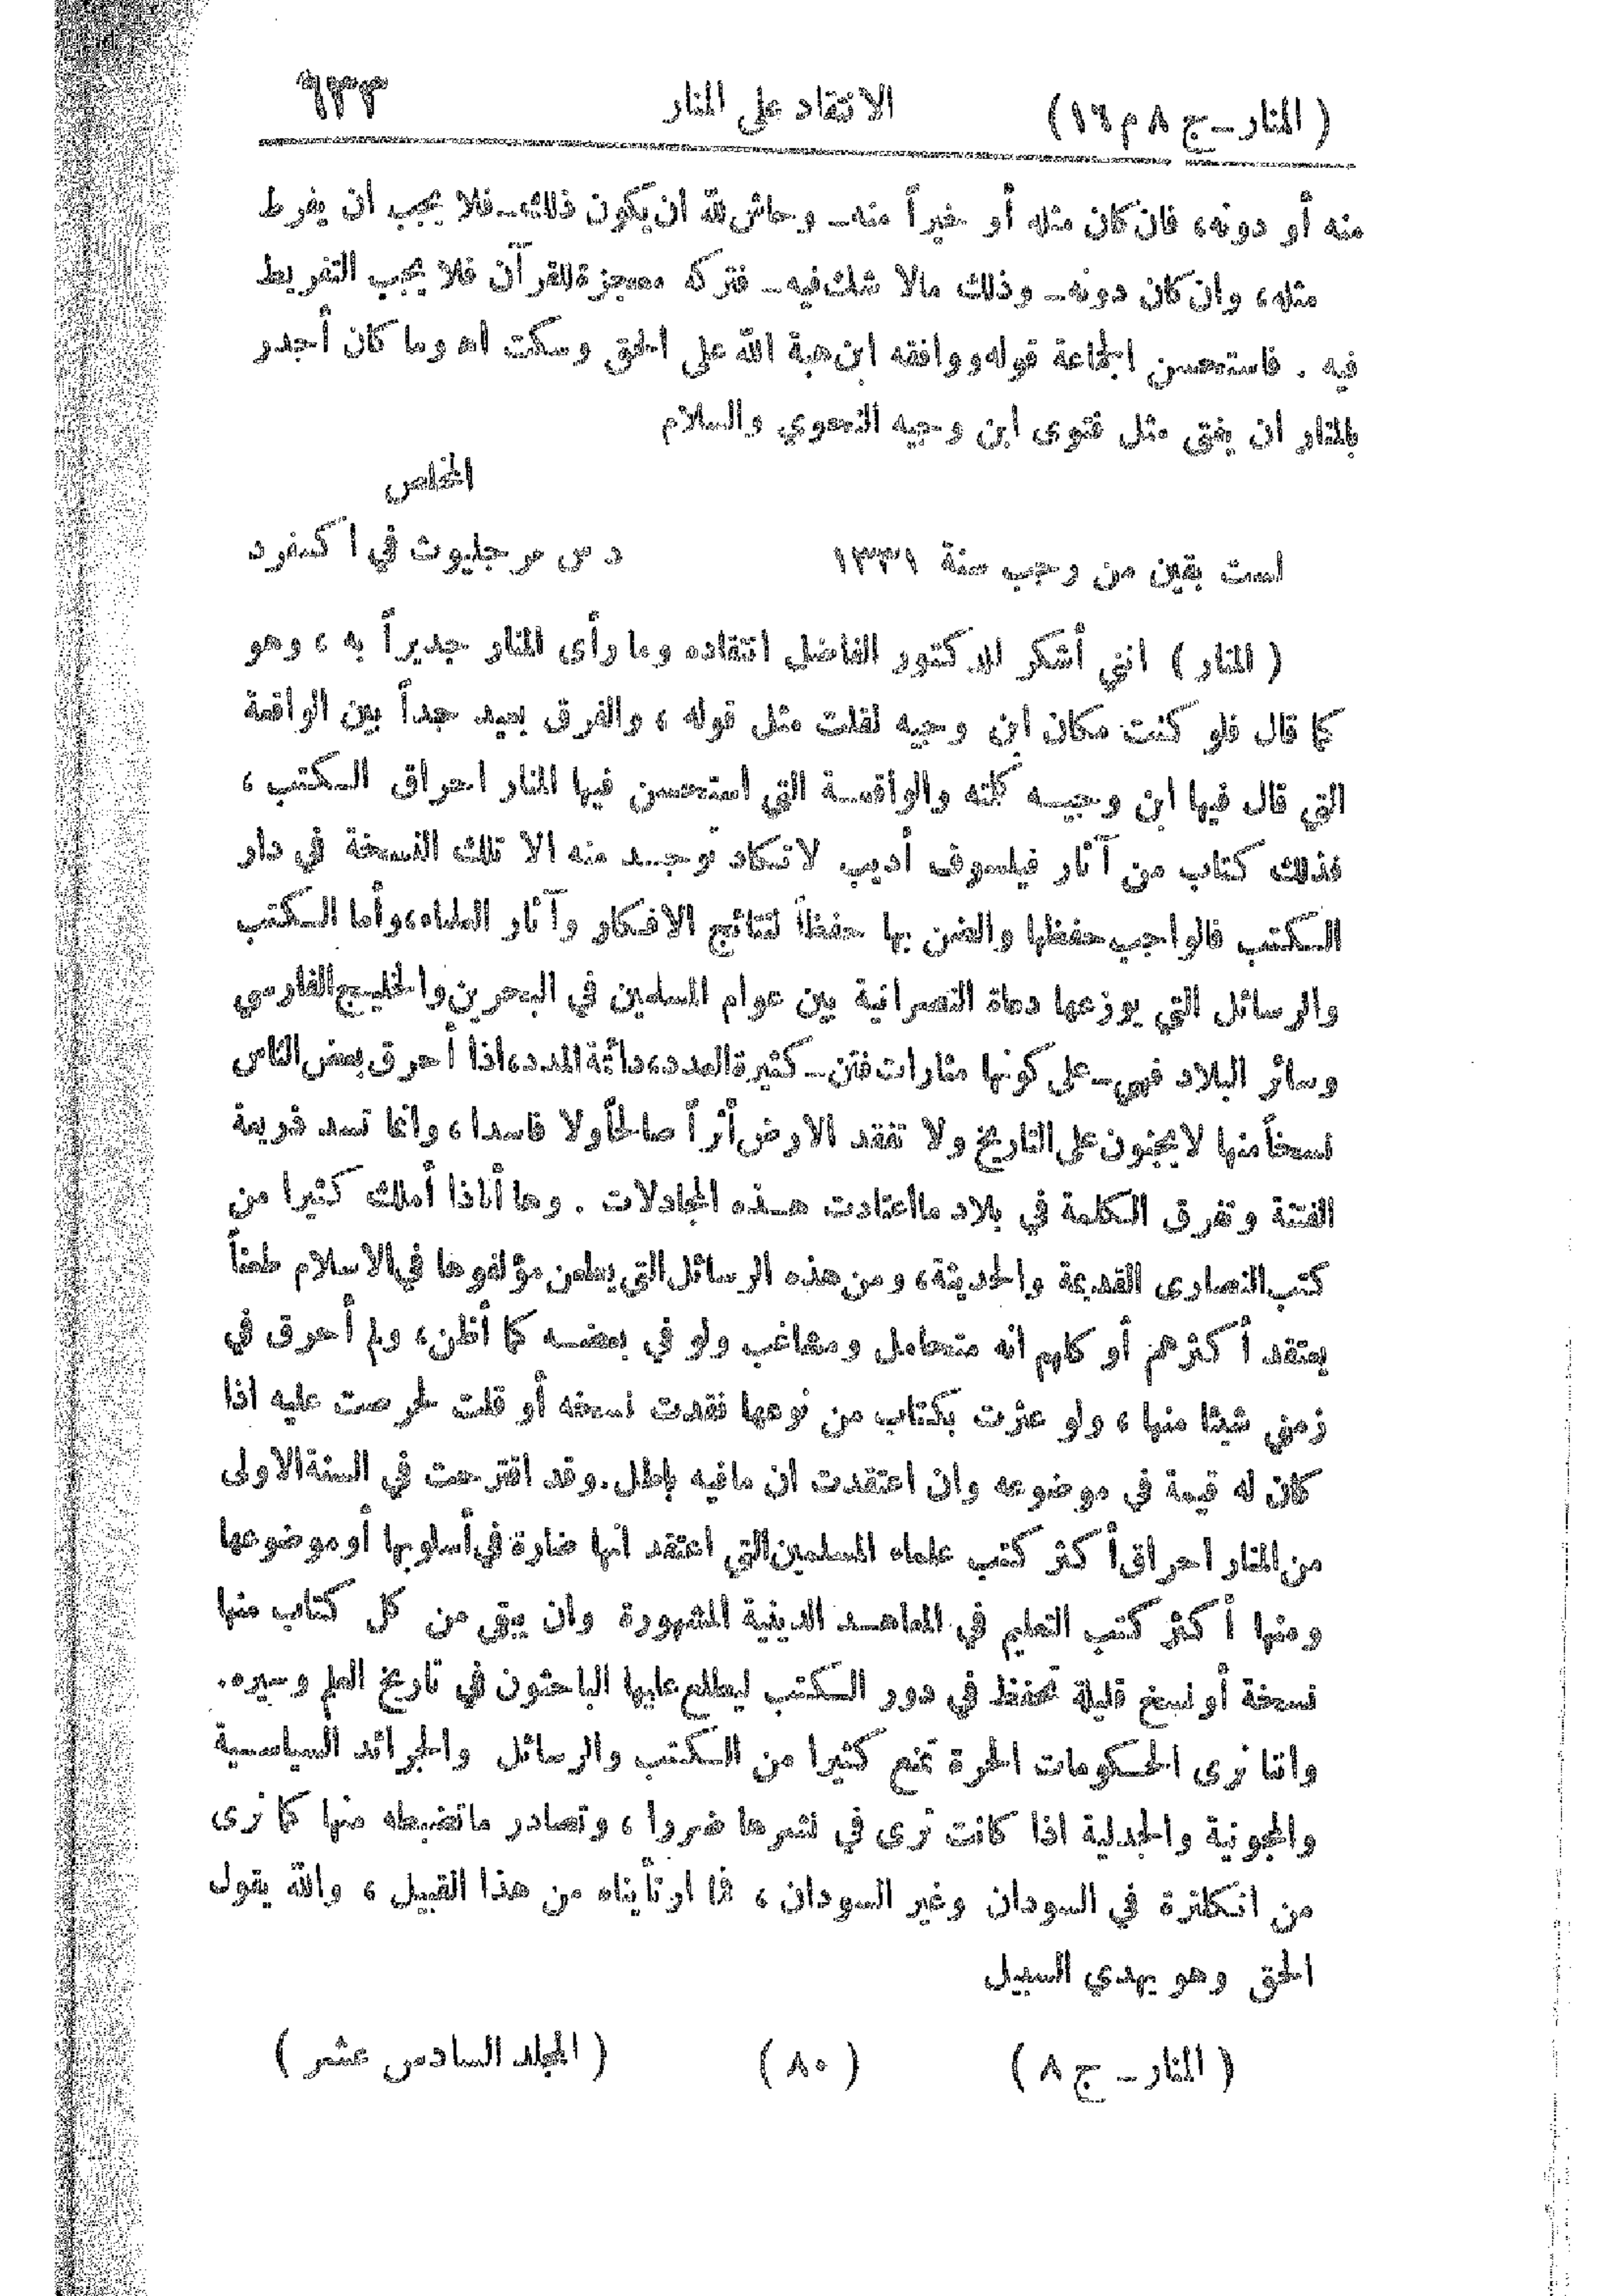 ( المنار ــ ج ٨ م ١٦ ) الانتقاد على المنار ٦٣٣
منه أو دونه، فان كان مثله أو خيراً منه ــ وحاش لله ان يكون ذلك ــ فلا يجب أن يفرط
مثله، وان كان دونه ــ وذلك مالا شك فيه ــ فتركه معجزة للقرآن فلا يجب التفريط
فيه . فاستحسن الجماعة قوله ووافقه ابن هبة الله على الحق وسكت اه وما كان أجدر
بالمنار ان يفتي مثل فتوى ابن وجيه النحوي والسلام
المخلص
لست بقين من رجب سنة ١٣٣١ د س مرجليوث في اكسفرد
( المنار ) انني أشكر للدكتور الفاضل انتقاده وما رأى المنار جديراً به ، وهو
كما قال فلو كنت مكان ابن وجيه لقلت مثل قوله ، والفرق بعيد جداً بين الواقعة
التي قال فيها ابن وجيــه كلمته والواقعــة التي استحسن فيها المنار احراق الـكتب ،
فذلك كتاب من آثار فيلسوف أديب لاتكاد توجــد منه الا تلك النسخة في دار
الـكتب فالواجب حفظها والضن بها حفظاً لنتائج الافكار وآثار العلماء، وأما الـكتب
والرسائل التي يوزعها دعاة النصرانية بين عوام المسلمين في البحرين والخليج الفارسي
وسائر البلاد فهي ــ على كونها مثارات فتن ــ كثيرة العدد، دائمة المدد، اذا أحرق بعض الناس
نسخاً منها لايجنون على التاريخ ولا تفقد الارض أثراً صالحاً ولا فاسدا ، وانما تسد ذريعة
الفتنة وتفرق الكلمة في بلاد مااعتادت هــذه المجادلات . وها أناذا أملك كثيرا من
كتب النصارى القديمة والحديثة، ومن هذه الرسائل التي يطعن مؤلفوها في الاسلام طعناً
يعتقد أكثرهم أو كلهم انه متحامل ومشاغب ولو في بعضــه كما أظن، ولم أحرق في
زمني شيئا منها ، ولو عثرت بكتاب من نوعها نفدت نسخه أو قلت لحرصت عليه اذا
كان له قيمة في موضوعه وان اعتقدت ان مافيه باطل. وقد اقترحت في السنة الاولى
من المنار احراق أكثر كتب علماء المسلمين التي اعتقد انها ضارة في أسلوبها أو موضوعها
ومنها أكثر كتب التعليم في المعاهــد الدينية المشهورة وان يبقى من كل كتاب منها
نسخة أو نسخ قليلة تحفظ في دور الـكتب ليطلع عليها الباحثون في تاريخ العلم وسيره.
واننا نرى الحـكومات الحرة تمنع كثيرا من الـكتب والرسائل والجرائد السياسية
والمجونية والجدلية اذا كانت ترى في نشرها ضررا ، وتصادر ماتضبطه منها كما نرى
من انكلترة في السودان وغير السودان ، فما ارتأيناه من هذا القبيل ، والله يقول
الحق وهو يهدي السبيل
( المنار ــ ج ٨ ) ( ٨٠ ) ( المجلد السادس عشر )